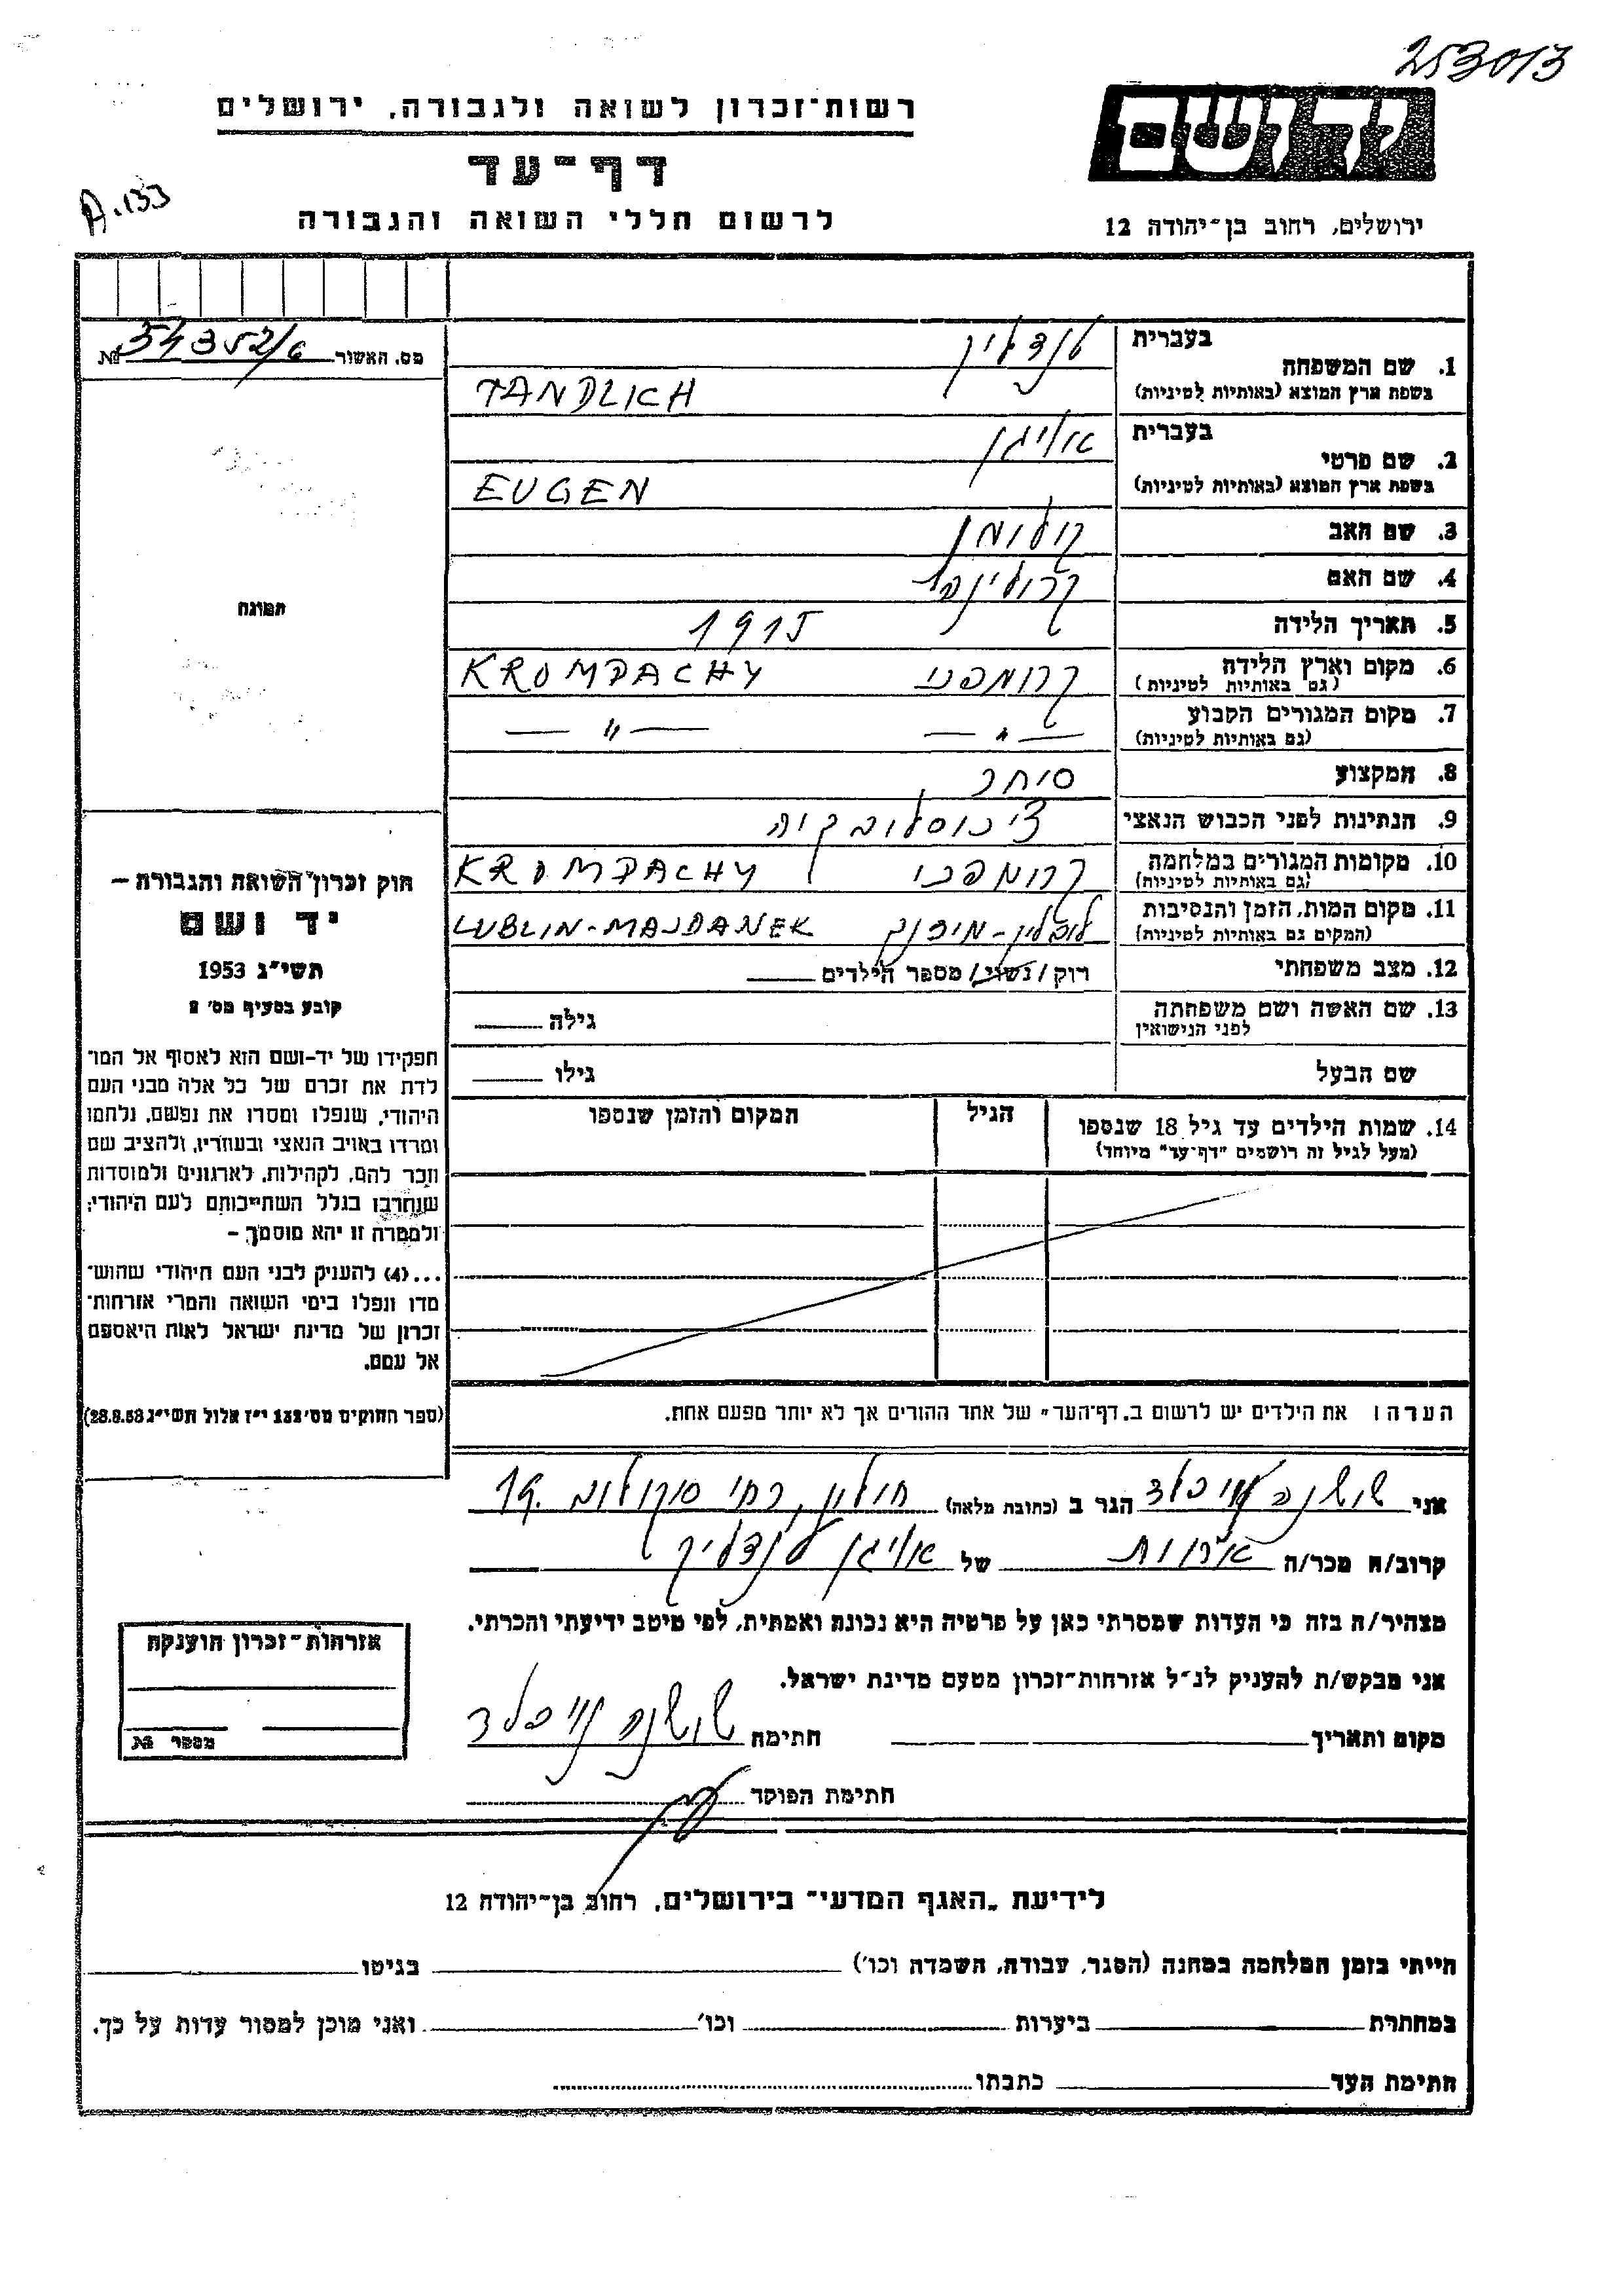 253013
יד ושם
רשות־זכרון לשואה ולגבורה, ירושלים
דף־עד
לרשום חללי השואה והגבורה
ירושלים, רחוב בן־יהודה 12
A.133
מס. האשור № 54352/6
תמונה
1. שם המשפחה
בעברית טנדליך
בשפת ארץ המוצא (באותיות לטיניות) TANDLICH
2. שם פרטי
בעברית אויגן
בשפת ארץ המוצא (באותיות לטיניות) EUGEN
3. שם האב קולומן
4. שם האם קרולינה
5. תאריך הלידה 1915
6. מקום וארץ הלידה קרומפכי KROMPACHY
(גם באותיות לטיניות)
7. מקום המגורים הקבוע — " — — " —
(גם באותיות לטיניות)
8. המקצוע סוחר
9. הנתינות לפני הכבוש הנאצי צ'כוסלובקיה
10. מקומות המגורים במלחמה קרומפכי KROMPACHY
(גם באותיות לטיניות)
11. מקום המות, הזמן והנסיבות לובלין-מידנק LUBLIN-MAJDANEK
(המקום גם באותיות לטיניות)
12. מצב משפחתי רוק / נשוי / מספר הילדים
13. שם האשה ושם משפחתה גילה
לפני הנישואין
שם הבעל גילו
14. שמות הילדים עד גיל 18 שנספו הגיל המקום והזמן שנספו
(מעל לגיל זה רושמים "דף־עד" מיוחד)
חוק זכרון השואה והגבורה –
יד ושם
תשי"ג 1953
קובע בסעיף מס' 2
תפקידו של יד-ושם הוא לאסוף אל המו־
לדת את זכרם של כל אלה מבני העם
היהודי, שנפלו ומסרו את נפשם, נלחמו
ומרדו באויב הנאצי ובעוזריו, ולהציב שם
וזכר להם, לקהילות, לארגונים ולמוסדות
שנחרבו בגלל השתייכותם לעם היהודי;
ולמטרה זו יהא מוסמך –
...(4) להעניק לבני העם היהודי שהוש־
מדו ונפלו בימי השואה והמרי אזרחות־
זכרון של מדינת ישראל לאות היאספם
אל עמם.
(ספר החוקים מס' 132 י"ז אלול תשי"ג 28.8.53)
הערה: את הילדים יש לרשום ב„דף־העד" של אחד ההורים אך לא יותר מפעם אחת.
אני שושנה הגר ב (כתובת מלאה) חולון, רח' סוקולוב 19.
קרוב/ה מכר/ה אחות של אויגן טנדליך
מצהיר/ה בזה כי העדות שמסרתי כאן על פרטיה היא נכונה ואמתית, לפי מיטב ידיעתי והכרתי.
אני מבקש/ת להעניק לנ"ל אזרחות־זכרון מטעם מדינת ישראל.
מקום ותאריך חתימה שושנה
חתימת הפוקד
אזרחות־זכרון הוענקה
מספר №
לידיעת „האגף המדעי" בירושלים, רחוב בן־יהודה 12
הייתי בזמן המלחמה במחנה (הסגר, עבודה, השמדה וכו') בגיטו
במחתרת ביערות וכו' ואני מוכן למסור עדות על כך.
חתימת העד כתבתו